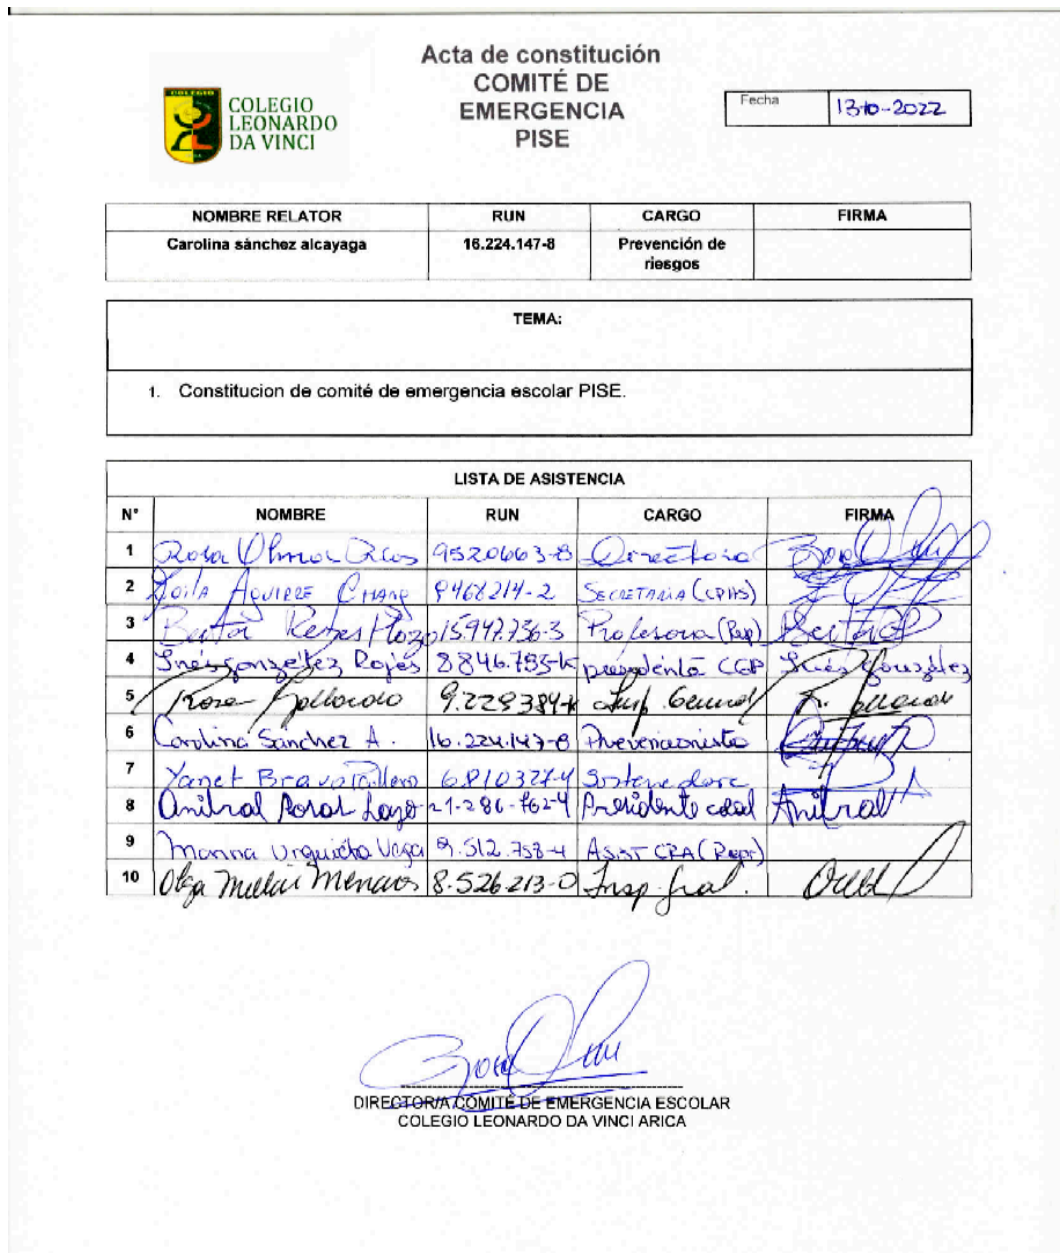 Acta de constitución
COMITÉ DE
EMERGENCIA
PISE
COLEGIO
COLEGIO
LEONARDO
DA VINCI
Fecha 13-10-2022
NOMBRE RELATOR RUN CARGO FIRMA
Carolina sánchez alcayaga 16.224.147-8 Prevención de
riesgos
TEMA:
1. Constitucion de comité de emergencia escolar PISE.
LISTA DE ASISTENCIA
N° NOMBRE RUN CARGO FIRMA
1 Rosa Olmos 9520663-8 Directora
2 Zoila AGUIRRE CHANG 9468214-2 SECRETARIA (CPHS)
3 Reyes 15.947.736-3 Profesora (Rep)
4 Inés gonzelez Rojas 8.846.785-k presidenta CGP Inés González
5 Rosa Gallardo 9.229384-k Insp. General R. Gallardo
6 Carolina Sánchez A. 16.224.147-8 Prevencionista
7 Yanet Bravo 6810327-4 Sostenedora
8 Anibal Rosas Lazo 21-286-762-4 Presidente Anibal
9 Marina Urquieta Vega 9.512.758-4 ASIST CRA (Repr)
10 Olga 8.526.213-0 Insp. gral.
DIRECTOR/A COMITÉ DE EMERGENCIA ESCOLAR
COLEGIO LEONARDO DA VINCI ARICA